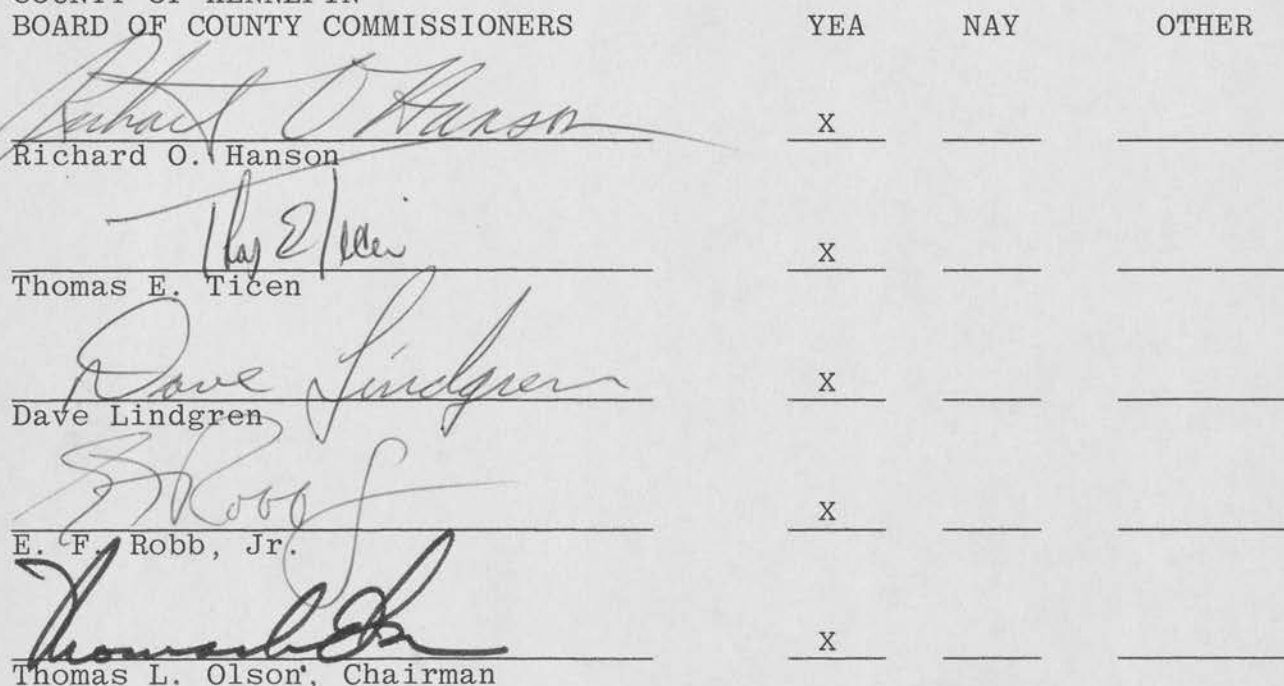 BOARD OF COUNTY COMMISSIONERS YEA NAY OTHER
Richard O Hanson X
Richard O. Hanson
Thos E Ticen X
Thomas E. Ticen
Dave Lindgren X
Dave Lindgren
E F Robb Jr X
E. F. Robb, Jr.
X
Thomas L. Olson, Chairman